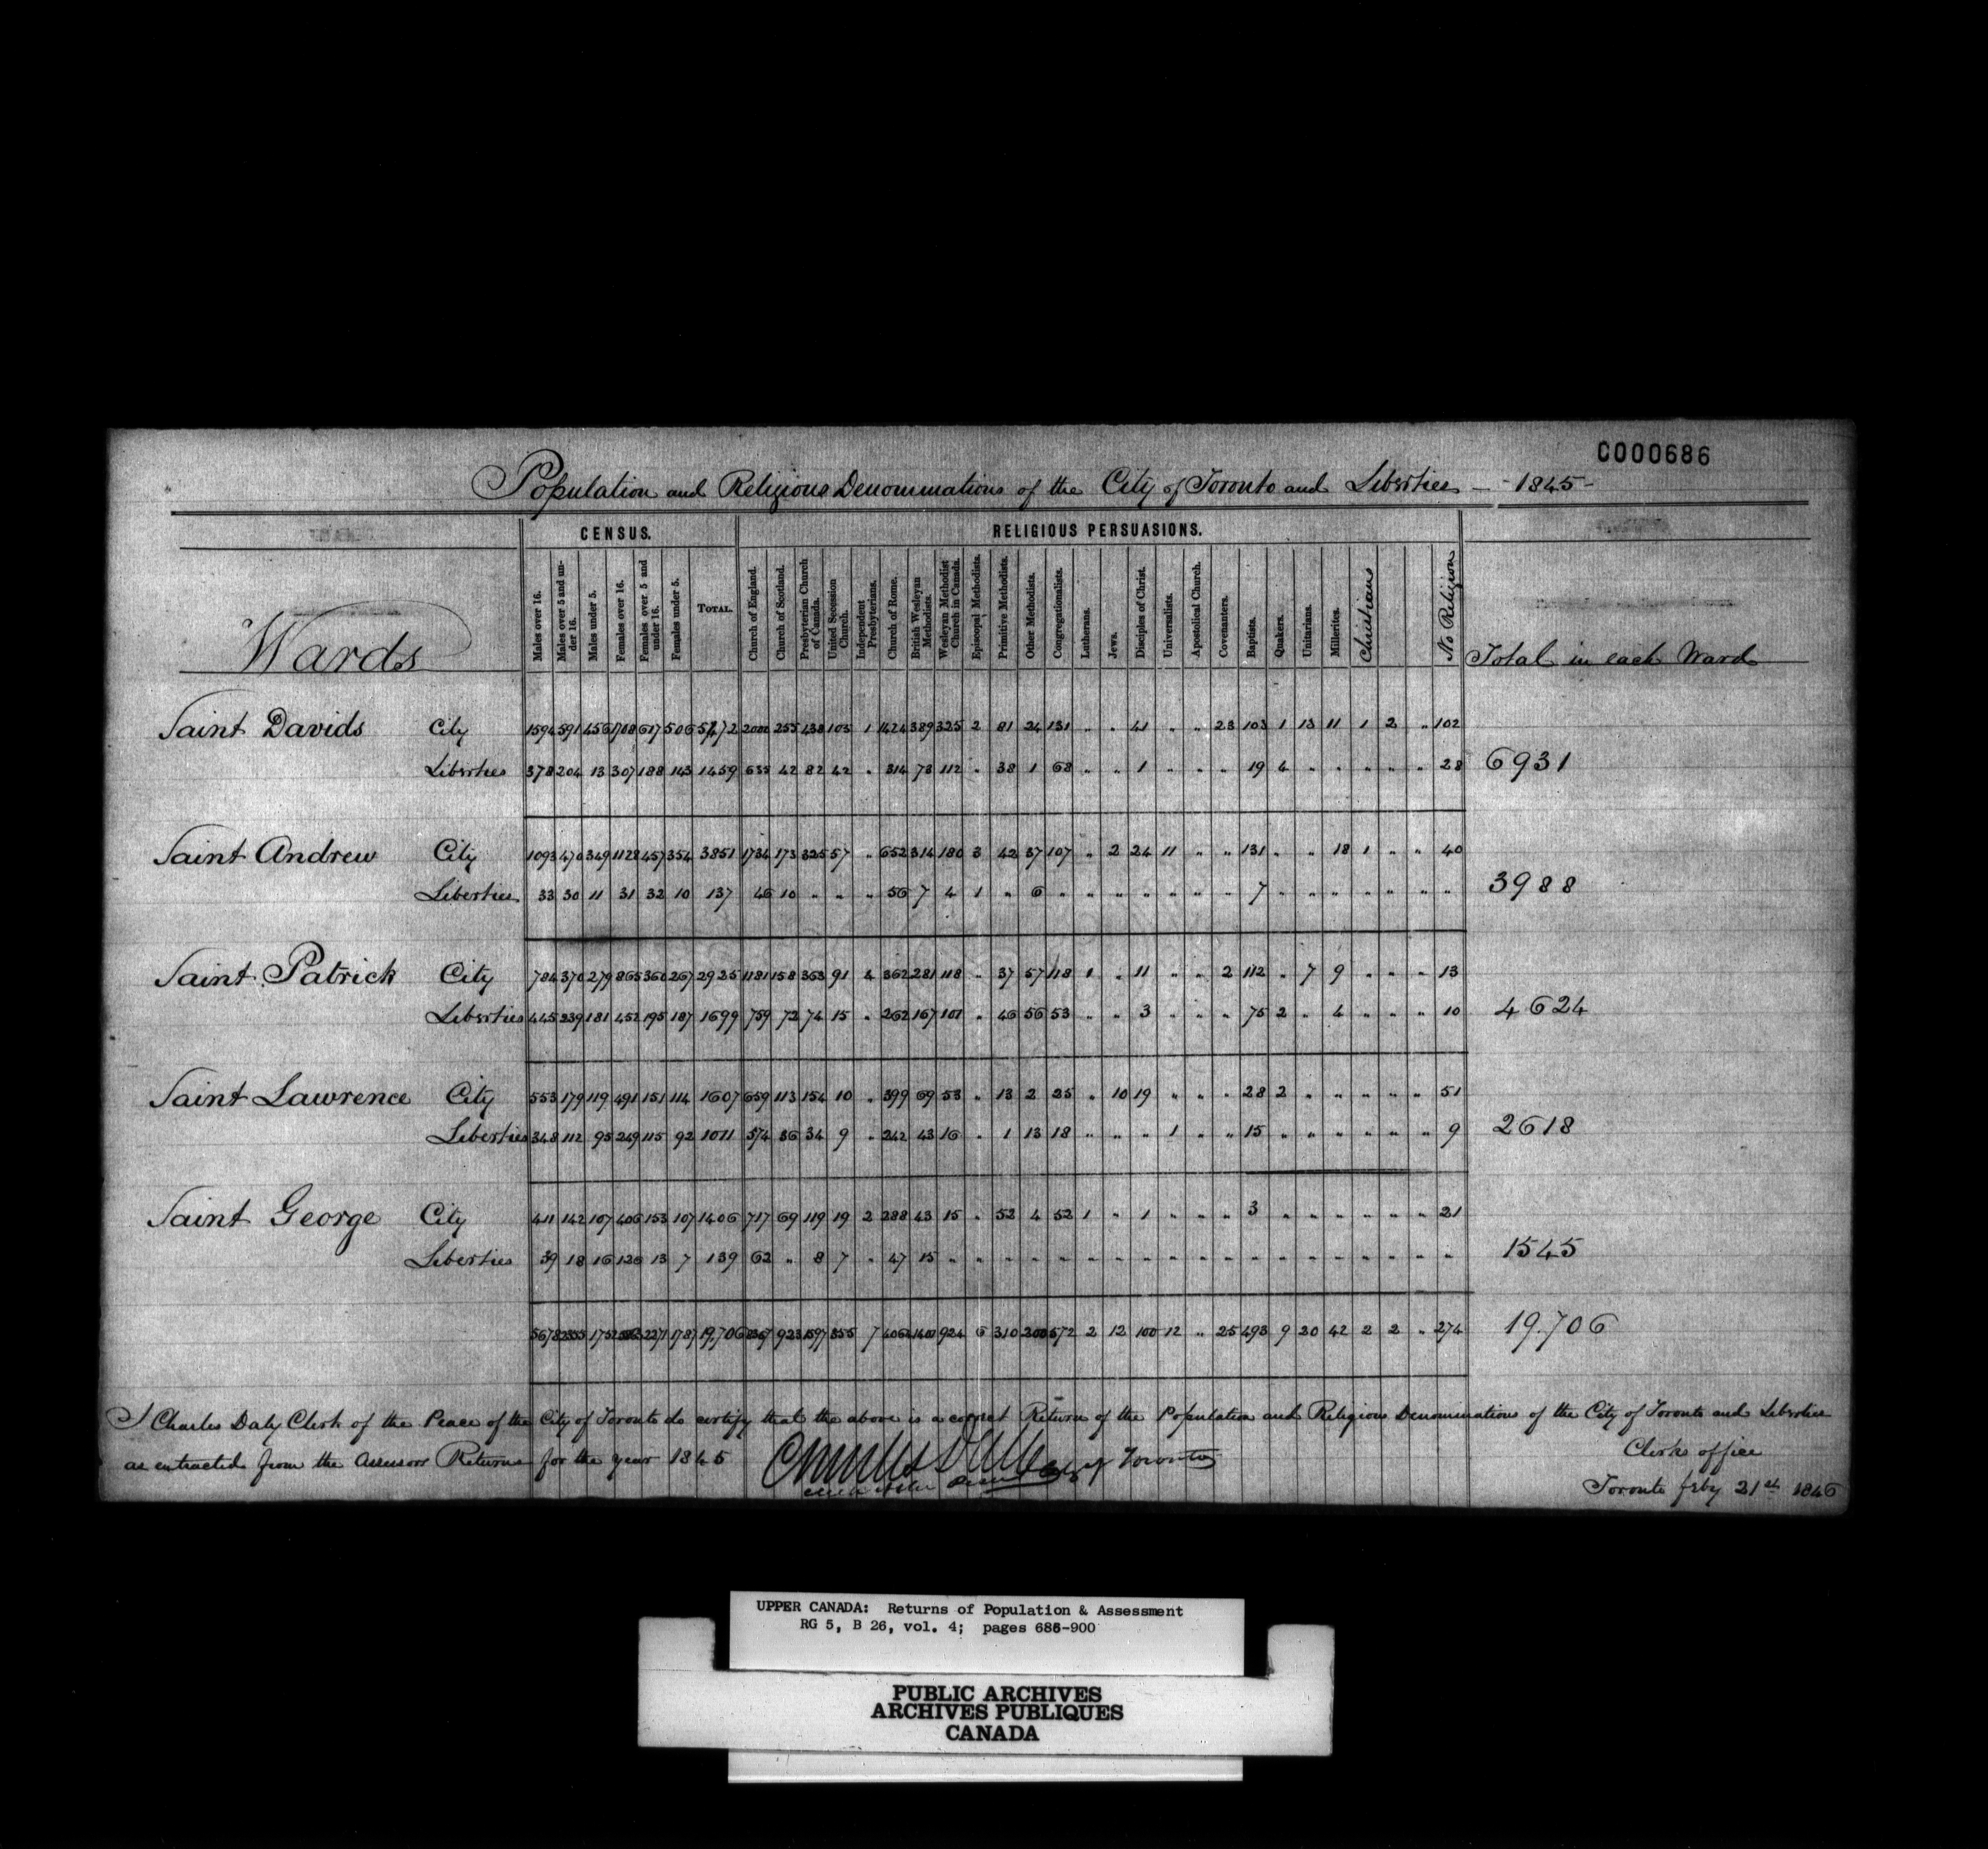 C000686
Population and Religious Denominations of the City of Toronto and Liberties - 1845 -
CENSUS. RELIGIOUS PERSUASIONS.
Wards Males over 16. Males over 5 and under 16. Males under 5. Females over 16. Females over 5 and under 16. Females under 5. TOTAL. Church of England. Church of Scotland. Presbyterian Church of Canada. United Secession Church. Independent Presbyterians. Church of Rome. British Wesleyan Methodists. Wesleyan Methodist Church in Canada. Episcopal Methodists. Primitive Methodists. Other Methodists. Congregationalists. Lutherans. Jews. Disciples of Christ. Universalists. Apostolical Church. Covenanters. Baptists. Quakers. Unitarians. Millerites. Christians No Religion Total in each Ward
Saint Davids City 1594 591 456 1708 617 506 5472 2000 255 438 105 1 1424 389 325 2 81 24 131 " " 41 " " 23 103 1 13 11 1 2 " 102
Liberties 378 204 13 307 188 143 1459 635 42 82 42 " 314 73 112 " 38 1 68 " " 1 " " " 19 4 " " " " " 28 6931
Saint Andrew City 1093 470 349 1128 457 354 3851 1734 173 325 57 " 652 314 180 3 42 37 107 " 2 24 11 " " 131 " " 18 1 " " 40
Liberties 33 30 11 31 32 10 137 46 10 " " " 56 7 4 1 " 6 " " " " " " " 7 " " " " " " " 3988
Saint Patrick City 784 370 279 865 360 267 2925 1181 158 363 91 4 362 281 118 " 37 57 118 1 " 11 " " 2 112 " 7 9 " " " 13
Liberties 445 239 181 452 195 187 1699 759 72 74 15 " 262 167 101 " 46 56 53 " " 3 " " " 75 2 " 4 " " " 10 4624
Saint Lawrence City 553 179 119 491 151 114 1607 659 113 154 10 " 399 69 53 " 13 2 25 " 10 19 " " " 28 2 " " " " " 51
Liberties 348 112 95 249 115 92 1011 574 36 34 9 " 242 43 16 " 1 13 18 " " " 1 " " 15 " " " " " " 9 2618
Saint George City 411 142 107 406 153 107 1406 717 69 119 19 2 288 43 15 " 52 4 52 1 " 1 " " " 3 " " " " " " 21
Liberties 39 18 16 126 13 7 139 62 " 8 7 " 47 15 " " " " " " " " " " " " " " " " " " " 1545
5678 2355 175 2271 1787 19,706 8367 923 1597 355 7 1400 924 6 310 200 572 2 12 100 12 " 25 493 9 20 42 2 2 " 274 19.706
I Charles Daly Clerk of the Peace of the City of Toronto do certify that the above is a correct Return of the Population and Religious Denominations of the City of Toronto and Liberties
as extracted from the Assessors Returns for the year 1845 Charles Daly Toronto Clerks office
Toronto feby 21st 1846
UPPER CANADA: Returns of Population & Assessment
RG 5, B 26, vol. 4; pages 686-900
PUBLIC ARCHIVES
ARCHIVES PUBLIQUES
CANADA